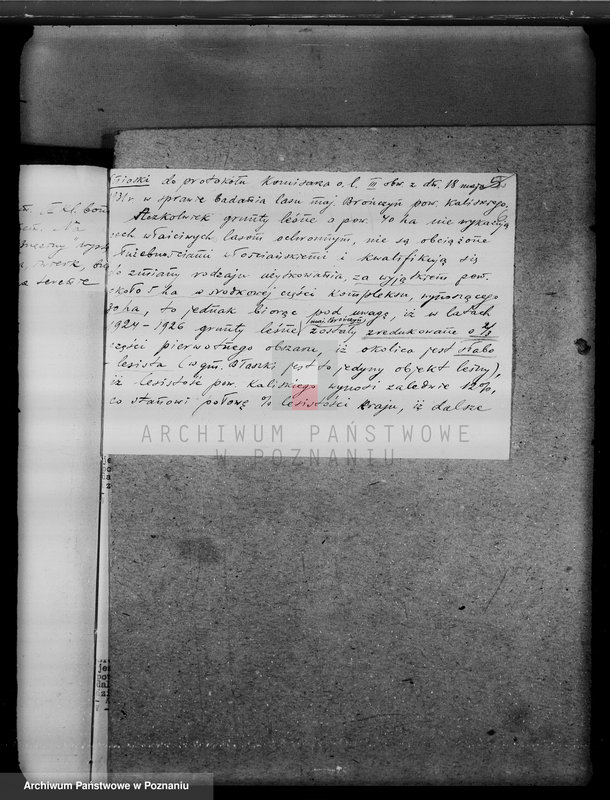 Wnioski do protokółu Komisarza o. l. III obw. z dn. 18 maja
1931 r. w sprawie badania lasu maj. Brończyn pow. kaliskiego.
Aczkolwiek grunty leśne o pow. 70 ha nie wykazują
cech właściwych lasom ochronnym, nie są obciążone
służebnościami włościańskiemi i kwalifikują się
do zmiany rodzaju użytkowania, za wyjątkiem pow.
około 5 ha w środkowej części kompleksu, wynoszącego
70 ha, to jednak biorąc pod uwagę, iż w latach
maj. Brończyn
1924-1926 grunty leśne zostały zredukowane o
części pierwotnego obszaru, iż okolica jest słabo
lesista (w gm. Błaszki jest to jedyny objekt leśny),
iż lesistość pow. kaliskiego wynosi zaledwie 12%,
co stanowi połowę % lesistości kraju, iż dalsze
ARCHIWUM PAŃSTWOWE
W POZNANIU
Archiwum Państwowe w Poznaniu